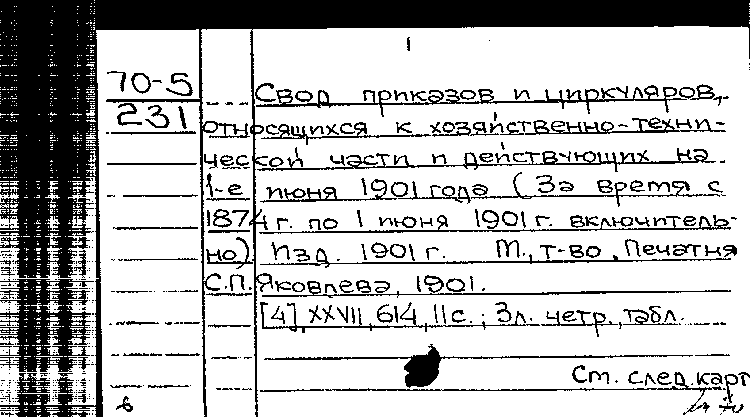 1
70-5
231
Свод приказов и циркуляров,
относящихся к хозяйственно-техни-
ческой части и действующих на
1-е июня 1901 года (За время с
1874 г. по 1 июня 1901 г. включитель-
но). Изд. 1901 г. М., т-во „Печатня
С.П. Яковлева, 1901.
[4], XXVII, 614, 11 с.; 3 л. четр., табл.
См. след. карт
6